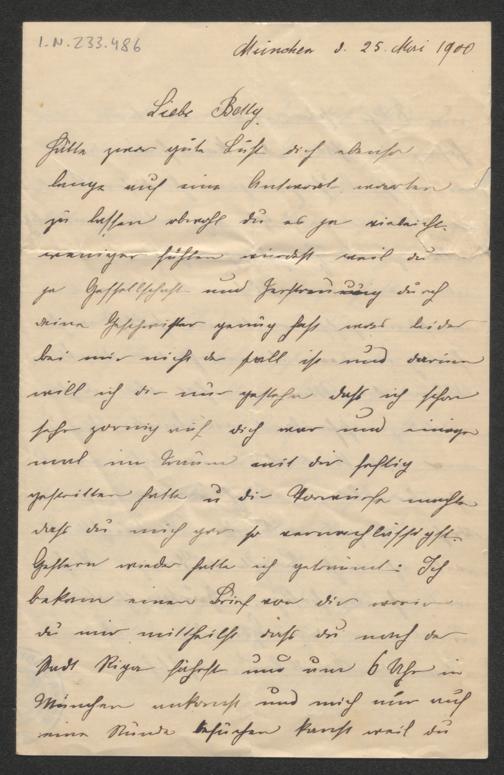 I.N. 233.486
München d. 25. Mai 1900
Liebe Betty
Hätte zwar gute Lust dich ebenso
lange auf eine Antwort warten
zu lassen obwohl du es ja vieleicht
weniger fühlen würdest weil du
ja Gesellschaft und Zerstreuung durch
deine Geschwister genug hast was leider
bei mir nicht der fall ist und darum
will ich dir nur gestehn daß ich schon
sehr zornig auf dich war und einige
mal im Traum mit dir heftig
gestritten hatte u dir Vorwürfe machte
daß du mich gar so vernachlässigst.
Gestern wieder hatte ich geträumt: Ich
bekam einen Brief von dir worin
du mir mittheilst daß du nach der
Stadt Riga fährst und um 6 Uhr in
München ankomst und mich nur auf
eine Stunde besuchen kanst weil du